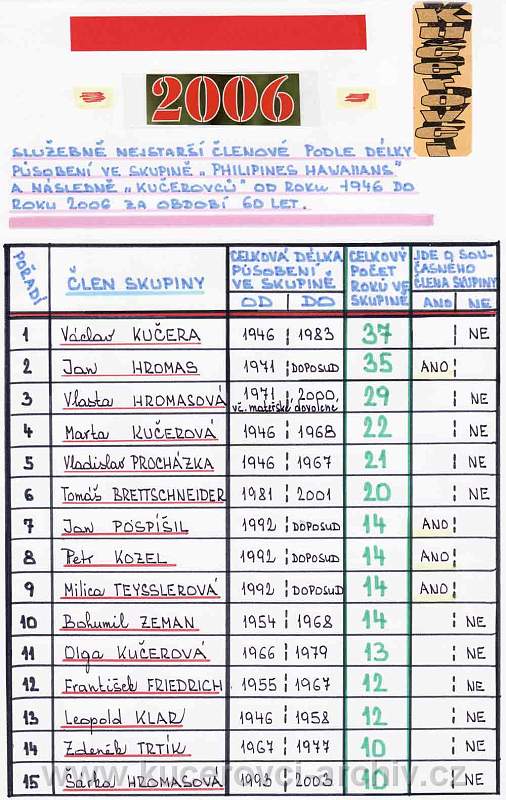 KUČEROVCI
2006
SLUŽEBNĚ NEJSTARŠÍ ČLENOVÉ PODLE DÉLKY
PŮSOBENÍ VE SKUPINĚ „PHILIPINES HAWAIIANS"
A NÁSLEDNĚ „KUČEROVCŮ" OD ROKU 1946 DO
ROKU 2006 ZA OBDOBÍ 60 LET.
POŘADÍ ČLEN SKUPINY CELKOVÁ DÉLKA PŮSOBENÍ VE SKUPINĚ OD DO CELKOVÝ POČET ROKŮ VE SKUPINĚ JDE O SOUČASNÉHO ČLENA SKUPINY ANO NE
1 Václav KUČERA 1946 1983 37 NE
2 Jan HROMAS 1971 DOPOSUD 35 ANO
3 Vlasta HROMASOVÁ 1971 2000 vč. mateřské dovolené 29 NE
4 Marta KUČEROVÁ 1946 1968 22 NE
5 Vladislav PROCHÁZKA 1946 1967 21 NE
6 Tomáš BRETTSCHNEIDER 1981 2001 20 NE
7 Jan POSPÍŠIL 1992 DOPOSUD 14 ANO
8 Petr KOZEL 1992 DOPOSUD 14 ANO
9 Milica TEYSSLEROVÁ 1992 DOPOSUD 14 ANO
10 Bohumil ZEMAN 1954 1968 14 NE
11 Olga KUČEROVÁ 1966 1979 13 NE
12 František FRIEDRICH 1955 1967 12 NE
13 Leopold KLAR 1946 1958 12 NE
14 Zdeněk TRTÍK 1967 1977 10 NE
15 Šárka HROMASOVÁ 1993 2003 10 NE
www.kucerovci-archiv.cz